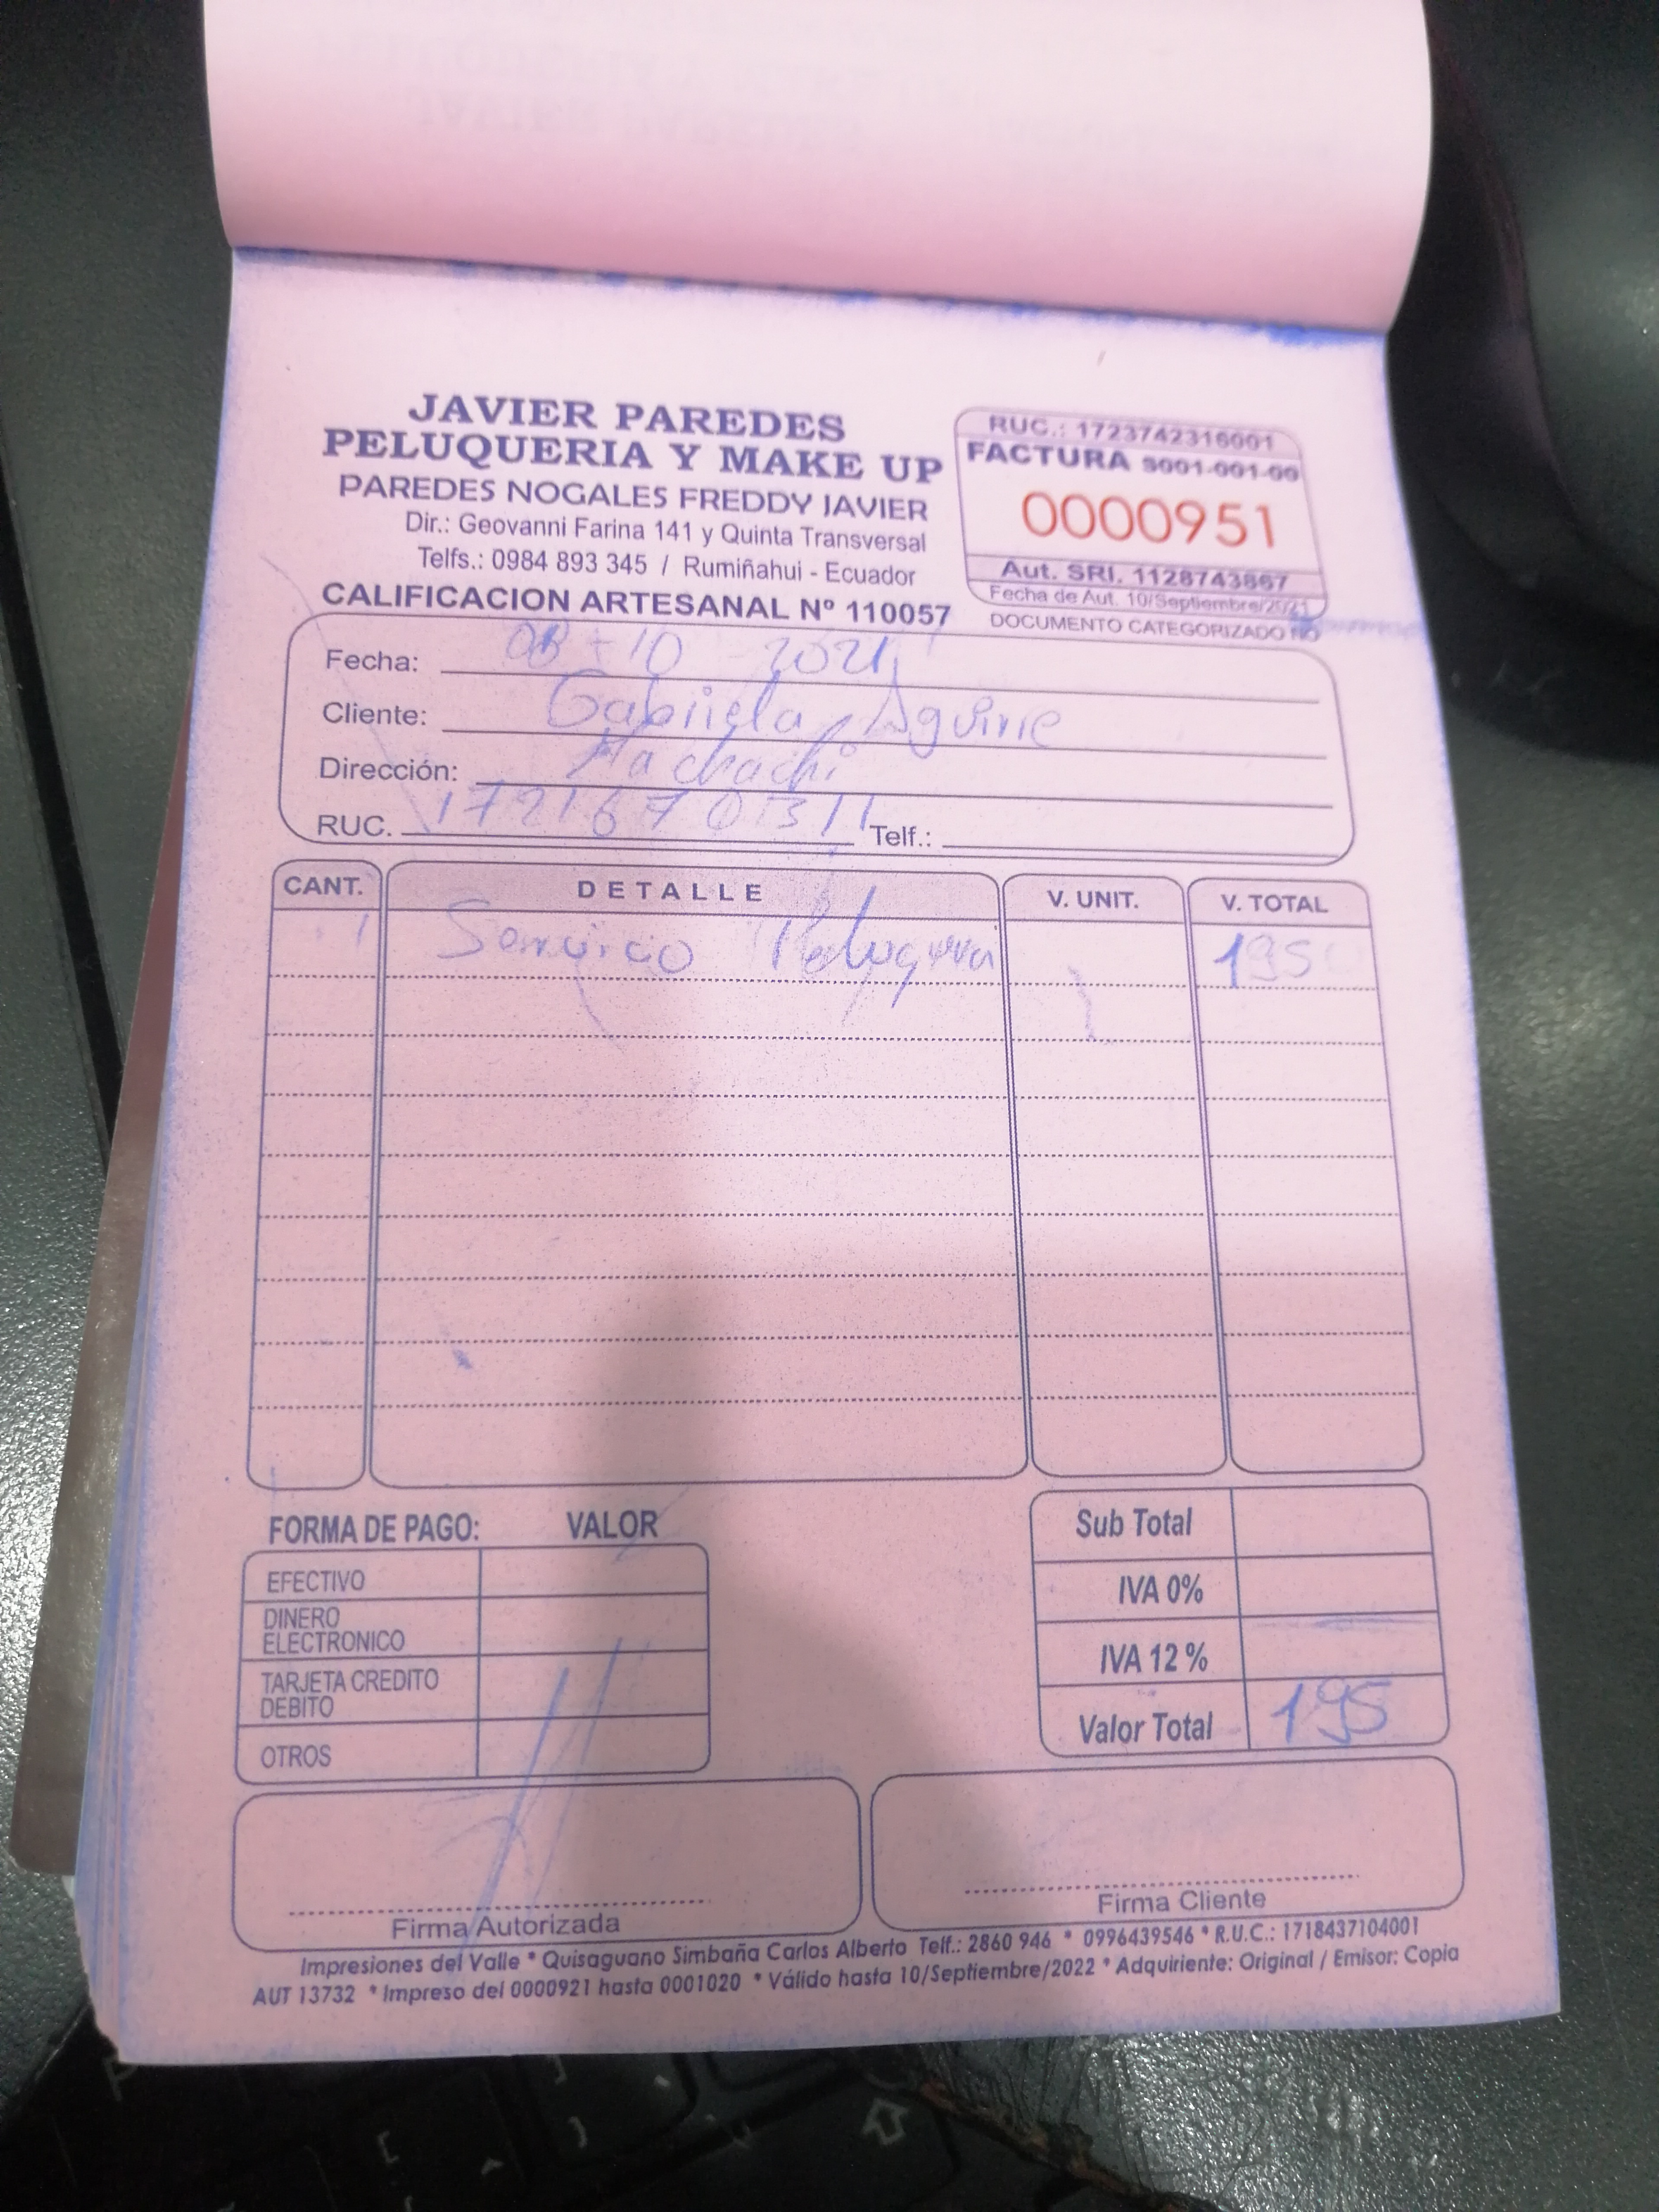 JAVIER PAREDES
PELUQUERIA Y MAKE UP
PAREDES NOGALES FREDDY JAVIER
Dir.: Geovanni Farina 141 y Quinta Transversal
Telfs.: 0984 893 345 / Rumiñahui - Ecuador
CALIFICACION ARTESANAL Nº 110057
RUC.: 1723742316001
FACTURA S001-001-00
0000951
Aut. SRI. 1128743867
Fecha de Aut. 10/Septiembre/2021
DOCUMENTO CATEGORIZADO NO
Fecha: 08 - 10 - 2021
Cliente: Gabriela Aguirre
Dirección: Machachi
RUC. 1721670311 Telf.:
CANT. DETALLE V. UNIT. V. TOTAL
1 Servicio Peluqueria 195
FORMA DE PAGO: VALOR
EFECTIVO
DINERO
ELECTRONICO
TARJETA CREDITO
DEBITO
OTROS
Sub Total
IVA 0%
IVA 12 %
Valor Total 195
Firma Autorizada
Firma Cliente
Impresiones del Valle * Quisaguano Simbaña Carlos Alberto Telf.: 2860 946 * 0996439546 * R.U.C.: 1718437104001
AUT 13732 * Impreso del 0000921 hasta 0001020 * Válido hasta 10/Septiembre/2022 * Adquiriente: Original / Emisor: Copia